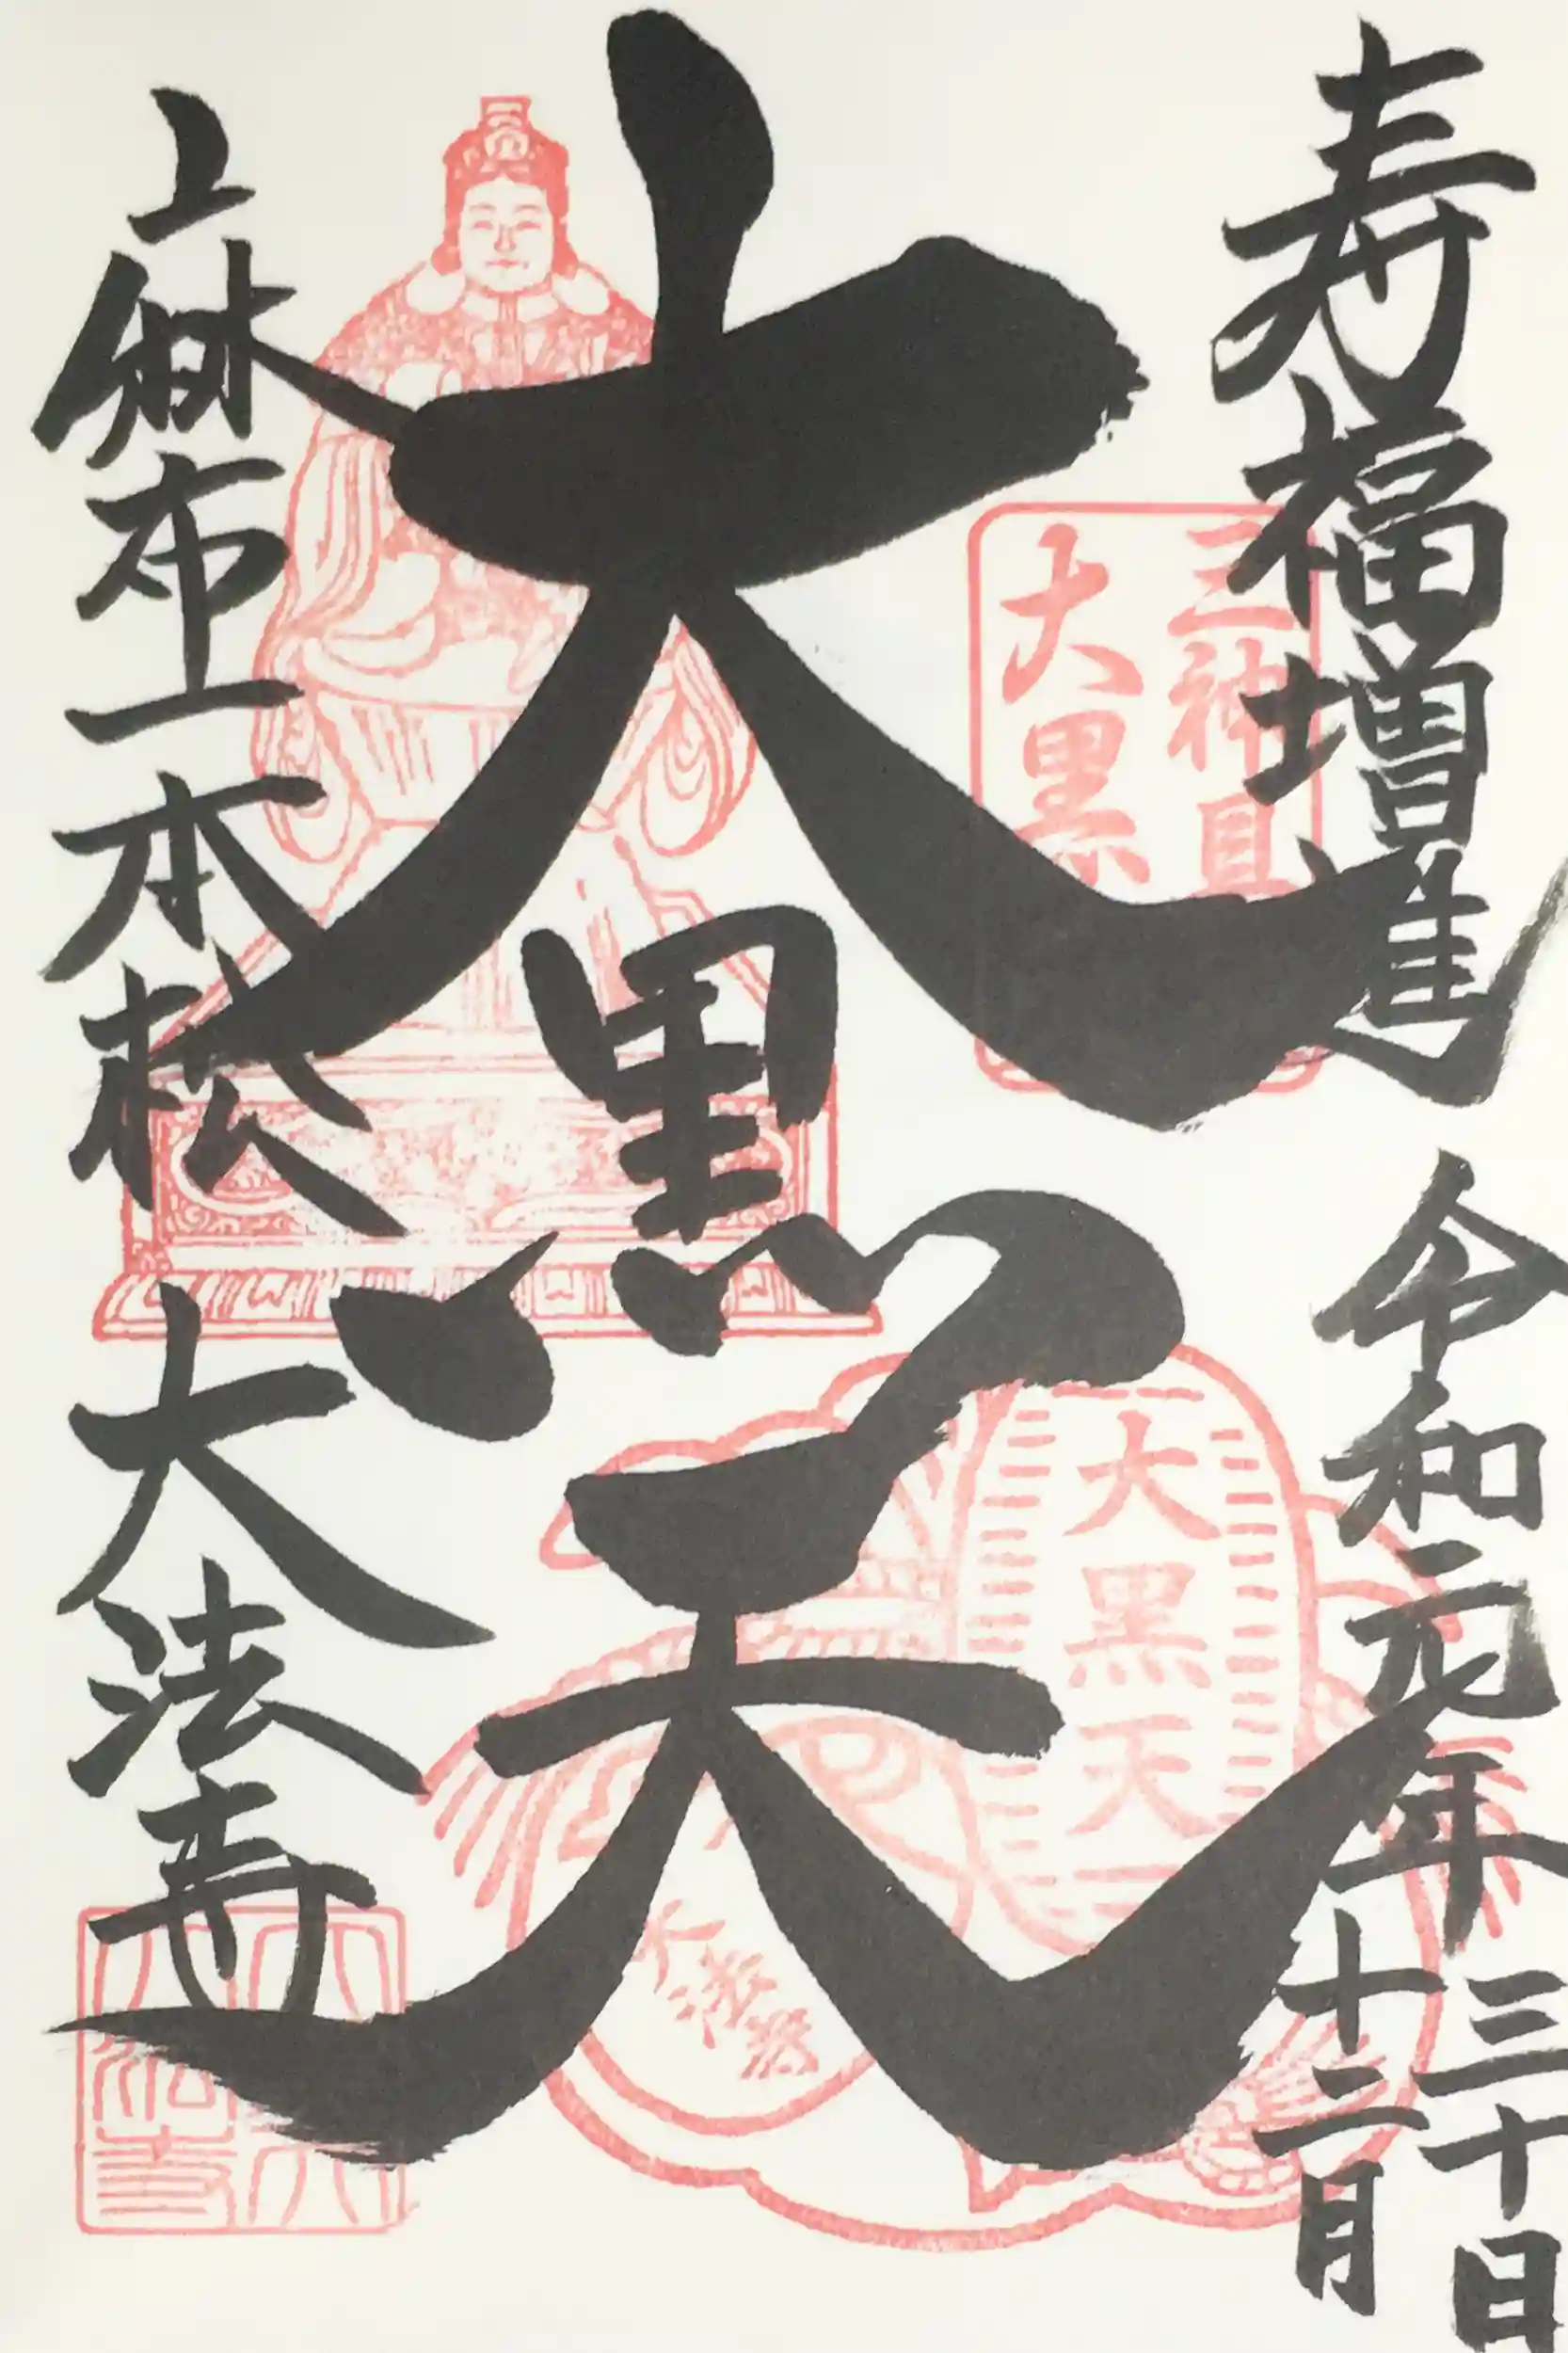 寿福増進
令和元年
十二月
三十日
三神具
大黒
大黒天
大黒天
大法寺
上麻布一本松
大法寺